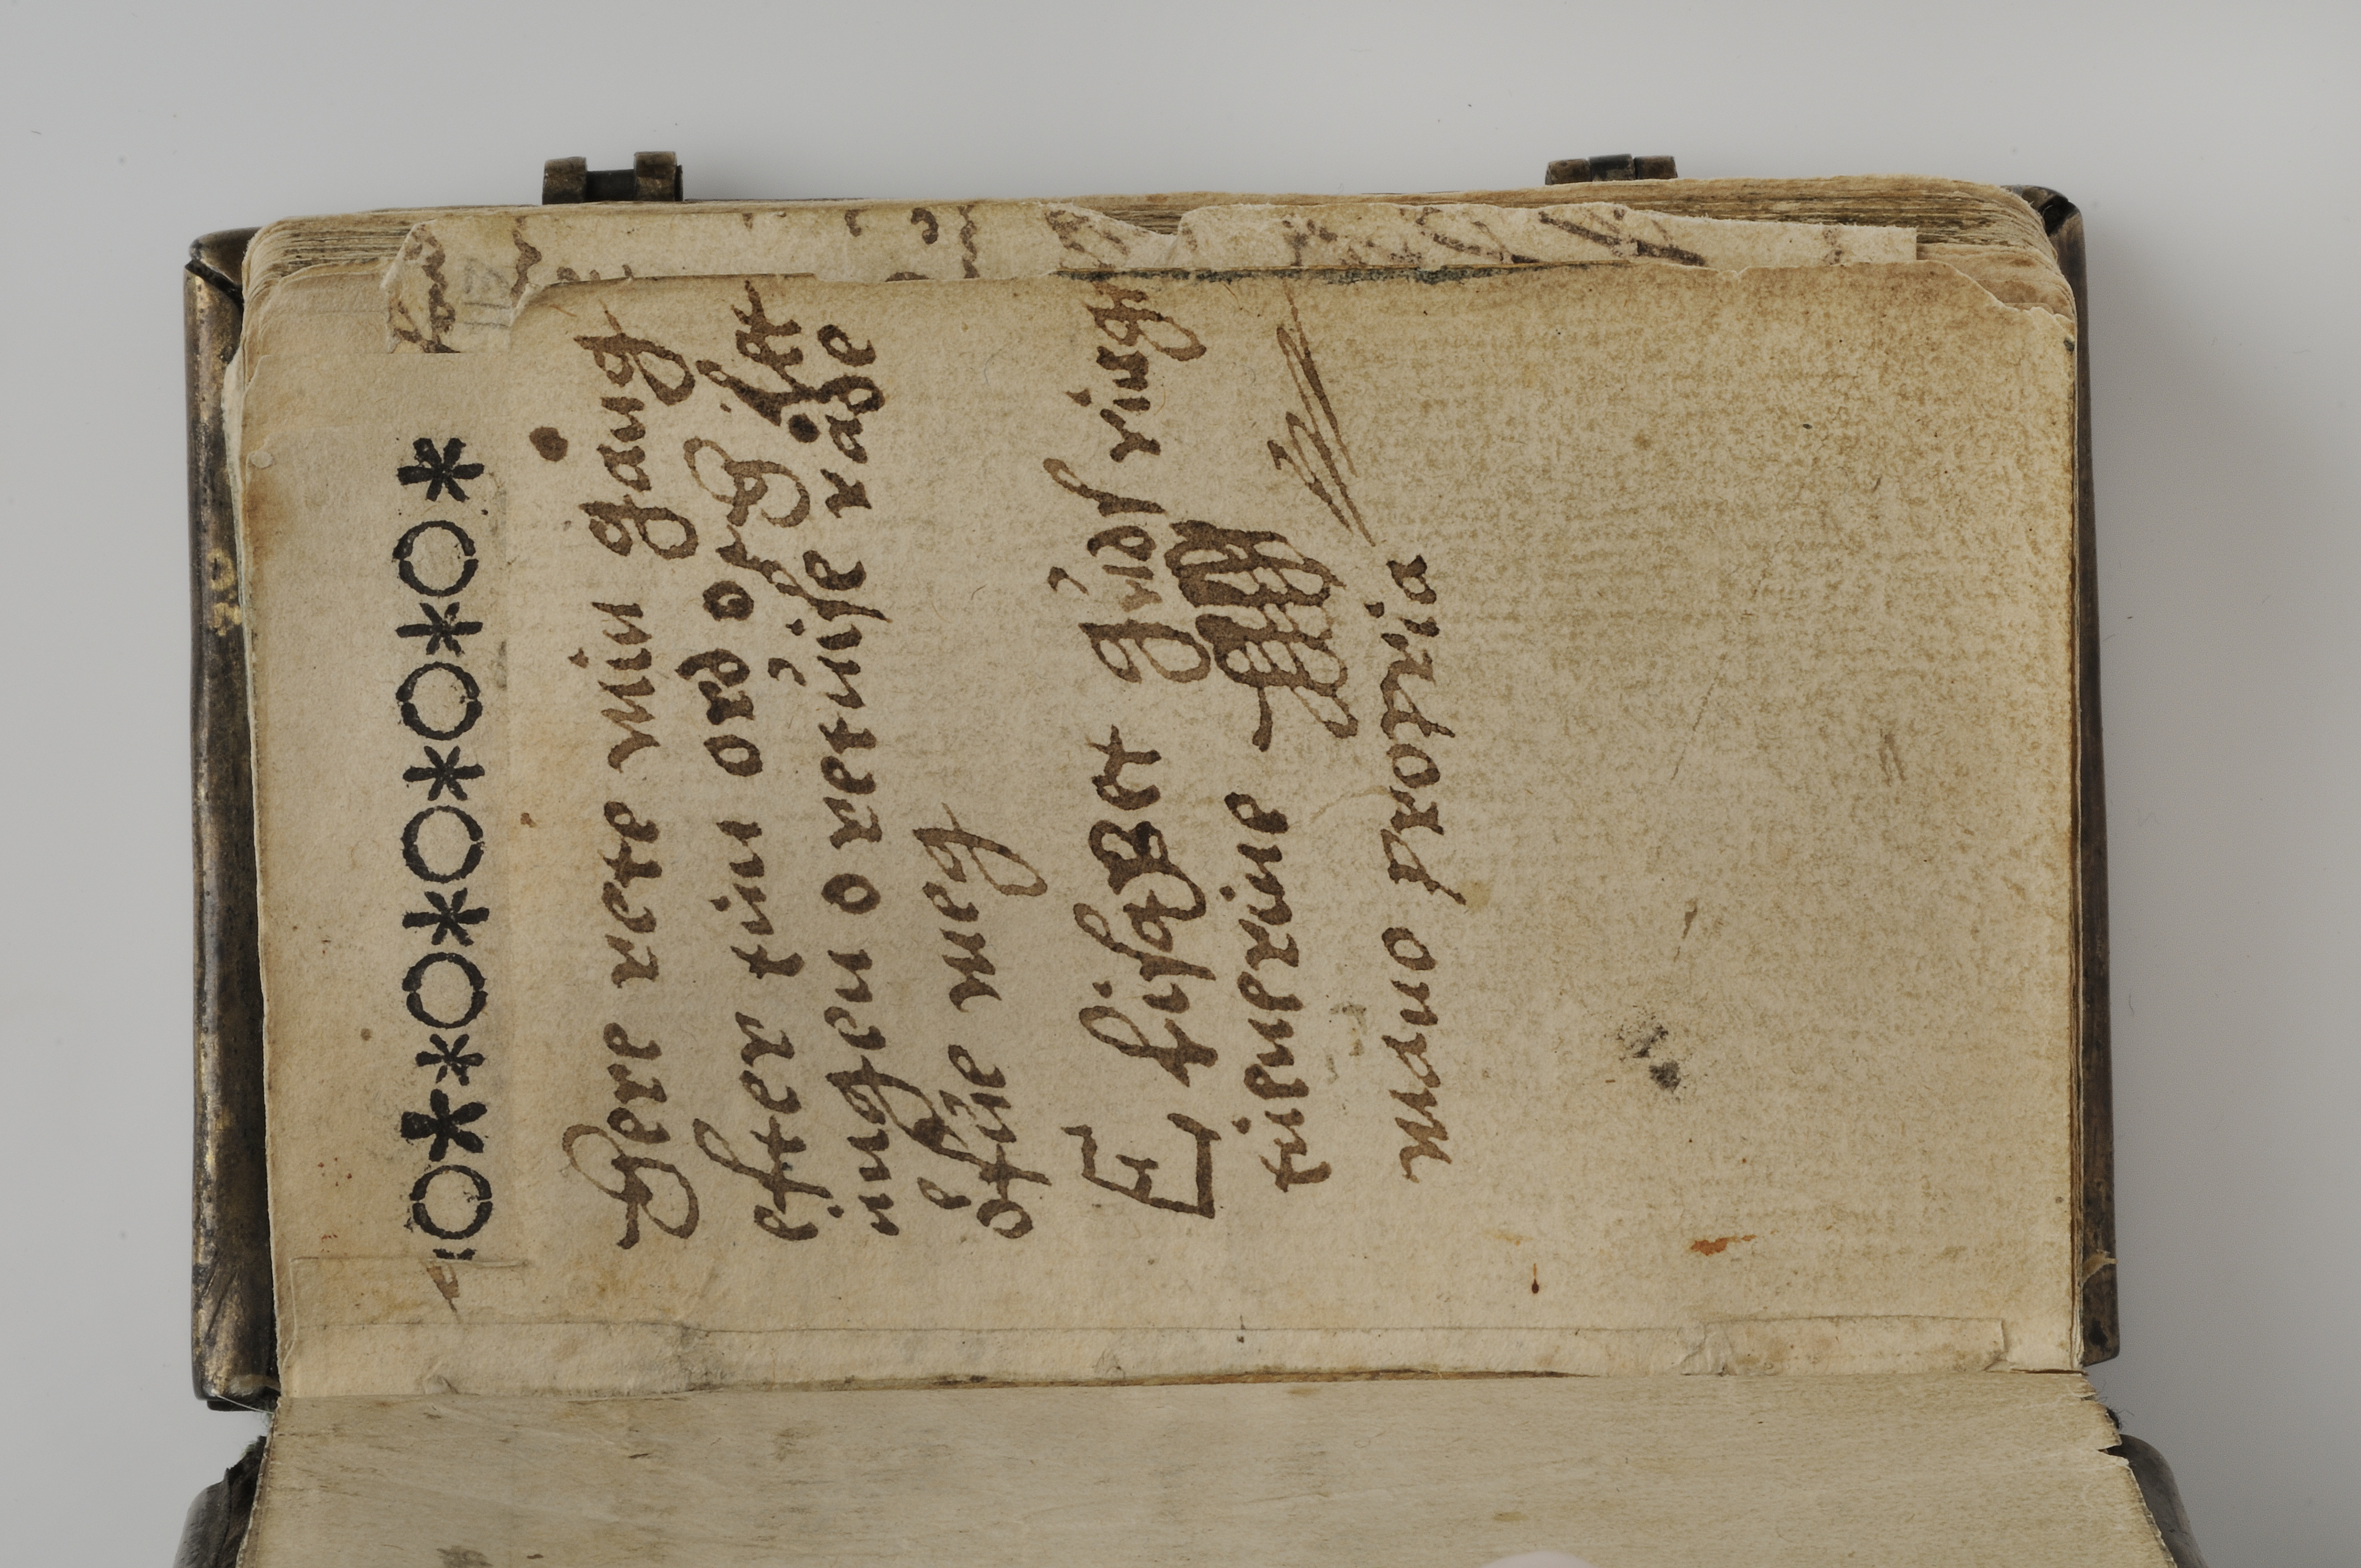 Here rete min gång
efter tin ord lat
ingen oretuise råde
öfue meg
E Lisabet guds ring
tienerine
mano propria